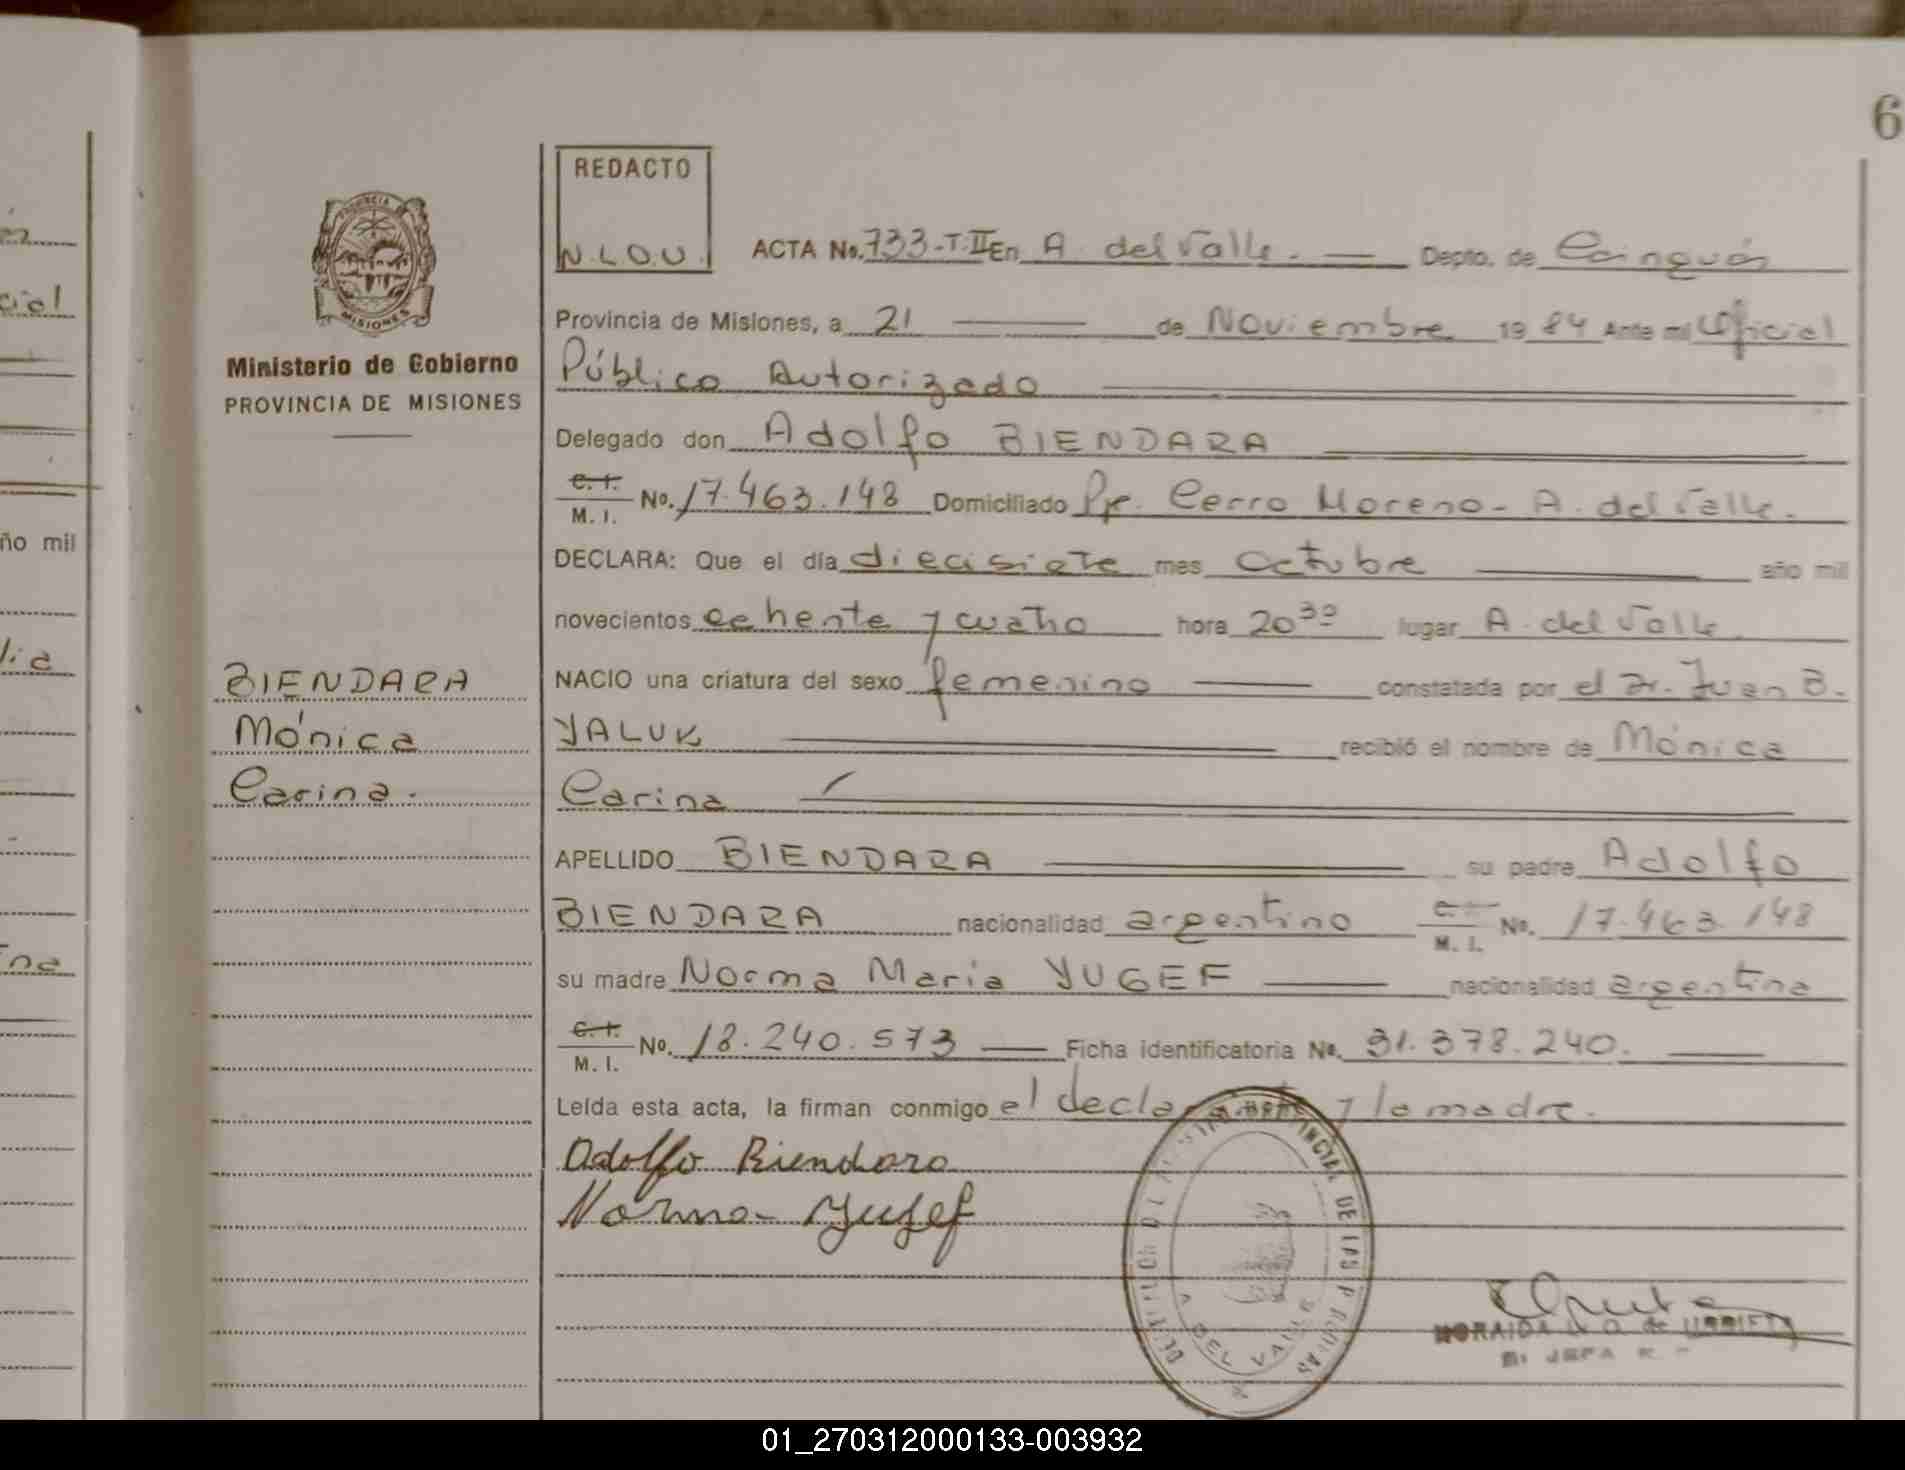 6
REDACTO
N.L.O.U.
ACTA No. 733-T.II En A. del Valle. Depto. de Cainguás
PROVINCIA
MISIONES
Provincia de Misiones, a 21 de Noviembre 1984 Ante mí Oficial
Ministerio de Gobierno
Público Autorizado
PROVINCIA DE MISIONES
Delegado don Adolfo BIENDARA
C.I.
M.I. No. 17.463.148 Domiciliado Pje. Cerro Moreno - A. del Valle.
DECLARA: Que el día diecisiete mes octubre año mil
novecientos ochenta y cuatro hora 20³⁰ lugar A. del Valle
BIENDARA
NACIO una criatura del sexo femenino constatada por el Dr. Juan B.
Mónica
YALUK recibió el nombre de Mónica
Carina.
Carina
APELLIDO BIENDARA su padre Adolfo
BIENDARA nacionalidad argentino C.I. M.I. No. 17.463.148
su madre Norma Maria YUGEF nacionalidad argentina
C.I.
M.I. No. 18.240.573 Ficha identificatoria No. 31.378.240.
Leída esta acta, la firman conmigo el declarante y la madre.
Adolfo Biendara
Norma Yugef
PROVINCIAL DE LAS PERSONAS
A. DEL VALLE
NORAIDA L. O. de URRIETA
JEFA R.
ño mil
01_270312000133-003932